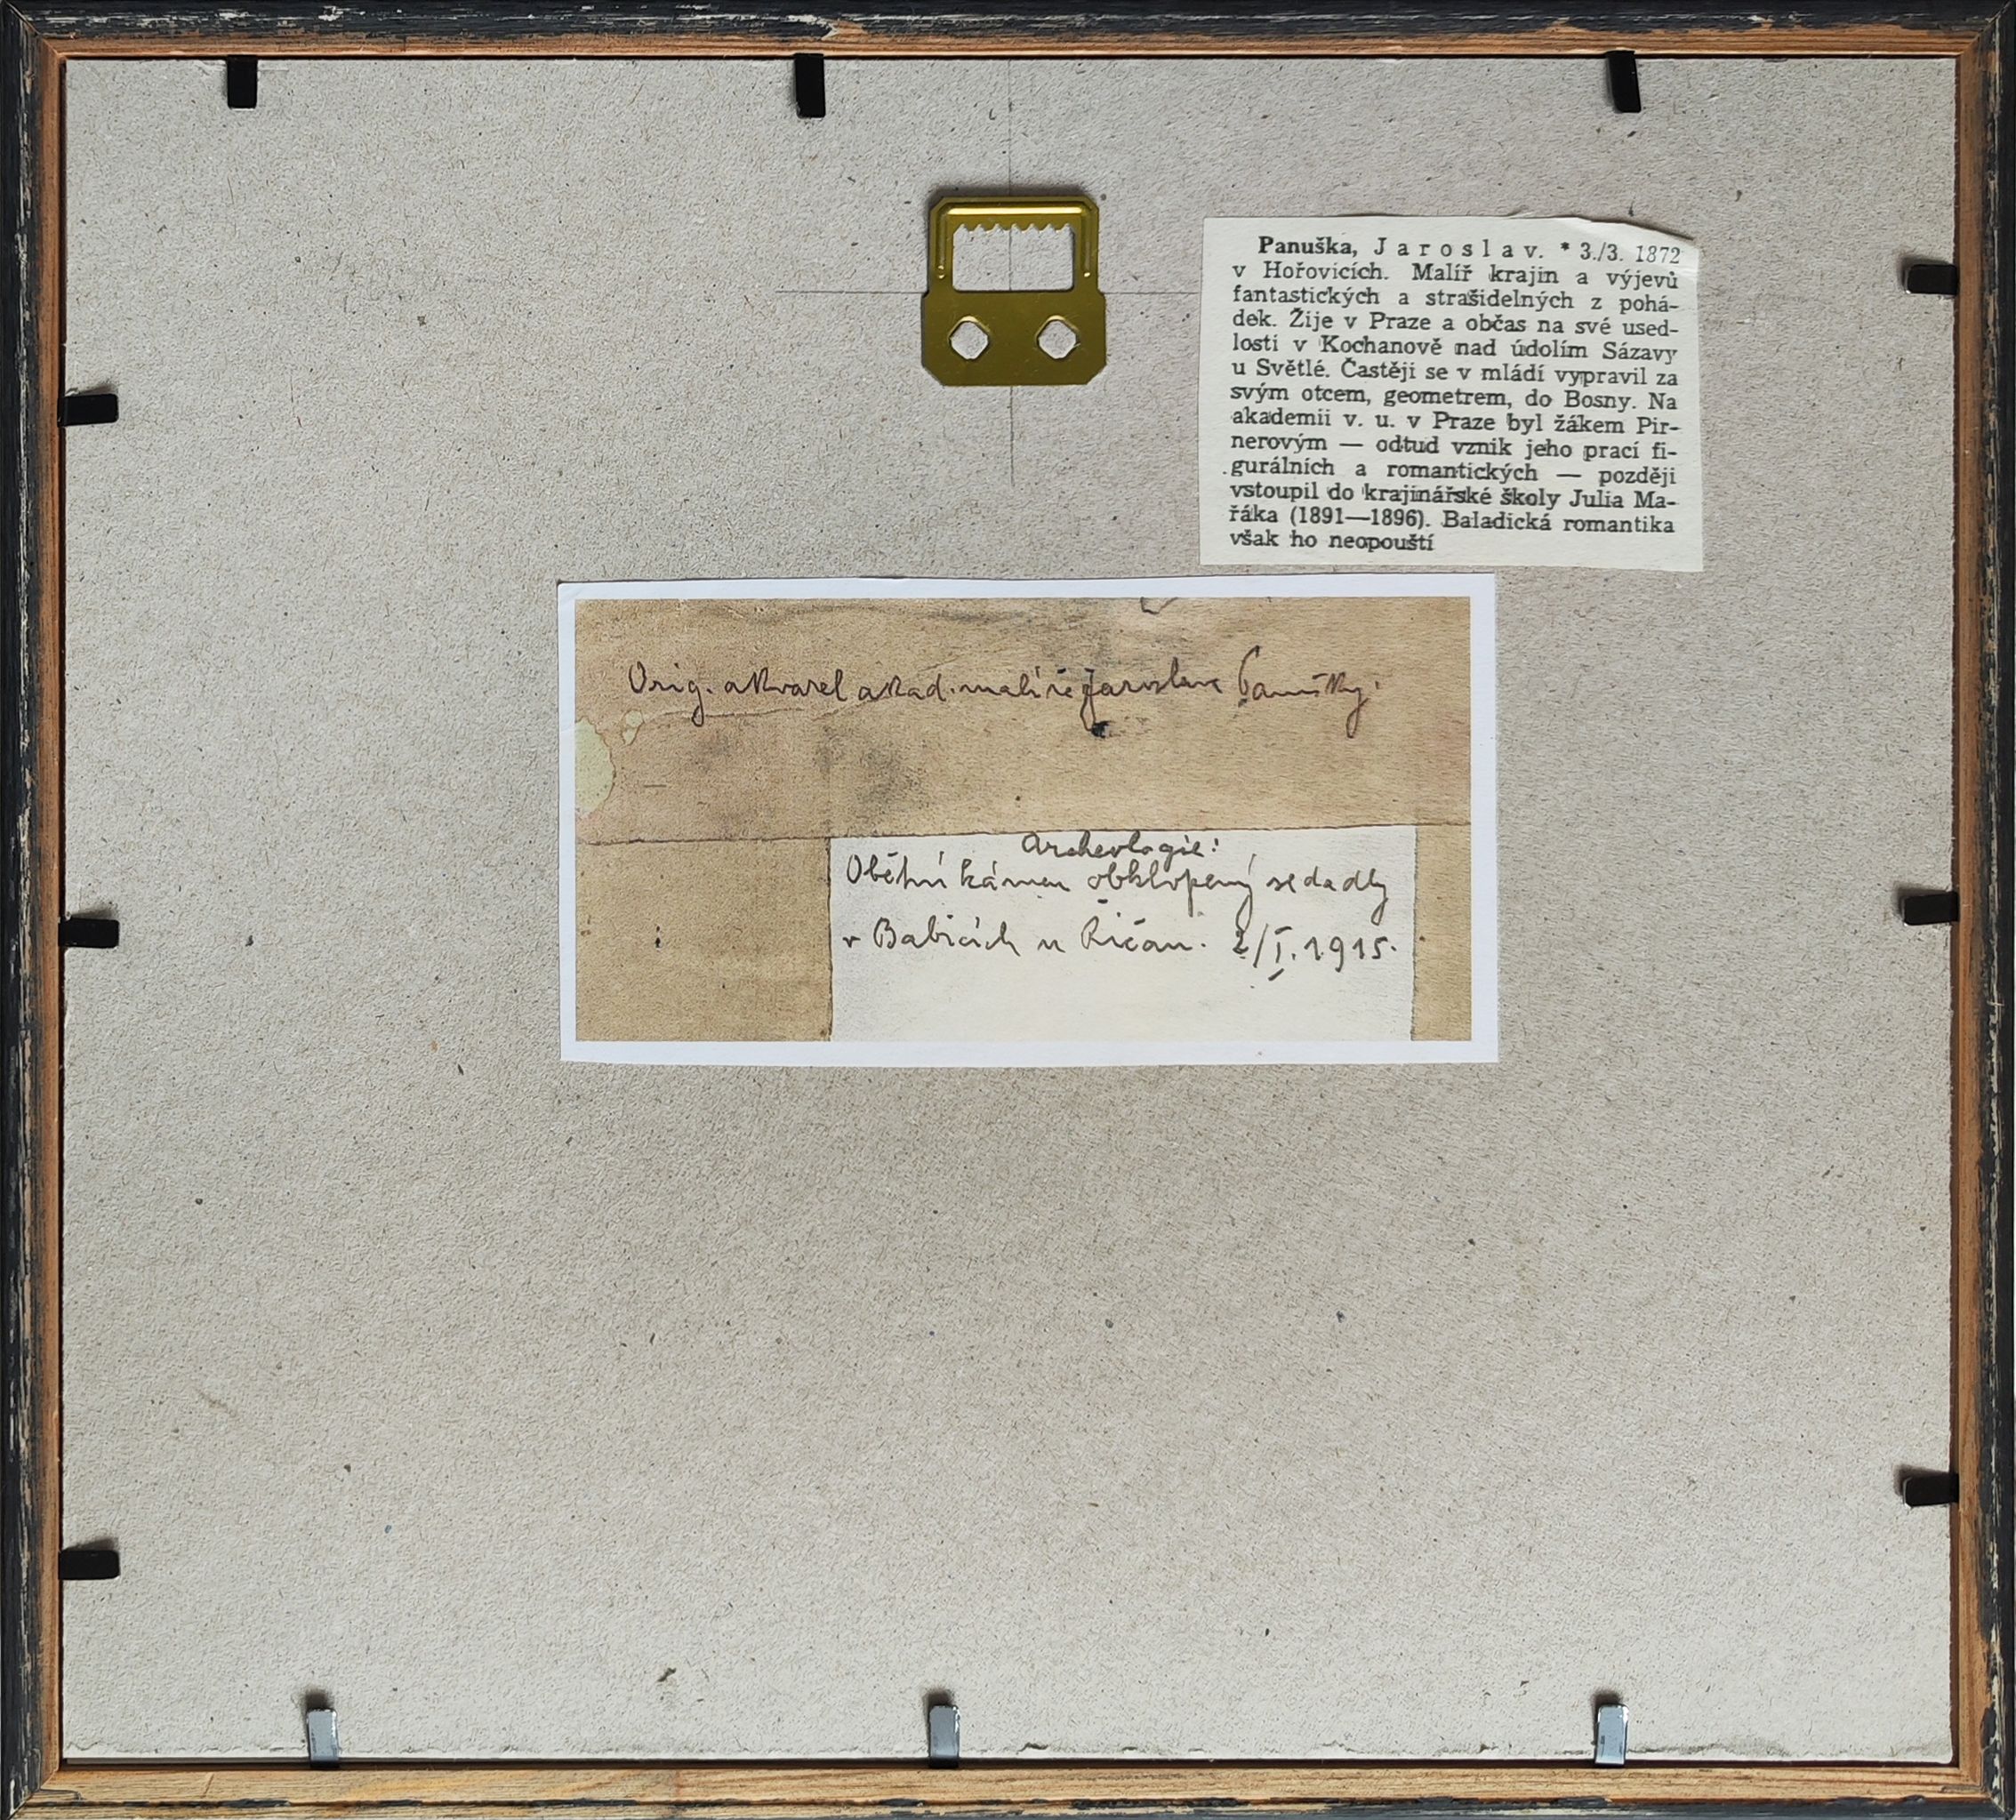 Panuška, Jaroslav. * 3./3. 1872
v Hořovicích. Malíř krajin a výjevů
fantastických a strašidelných z pohá-
dek. Žije v Praze a občas na své used-
losti v Kochanově nad údolím Sázavy
u Světlé. Častěji se v mládí vypravil za
svým otcem, geometrem, do Bosny. Na
akademii v. u. v Praze byl žákem Pir-
nerovým — odtud vznik jeho prací fi-
gurálních a romantických — později
vstoupil do krajinářské školy Julia Ma-
řáka (1891—1896). Baladická romantika
však ho neopouští
Orig. akvarel akad. malíře Jaroslava Panušky.
Archeologie:
Obětní kámen obklopený sedadly
v Babicích u Říčan. 2/I. 1915.